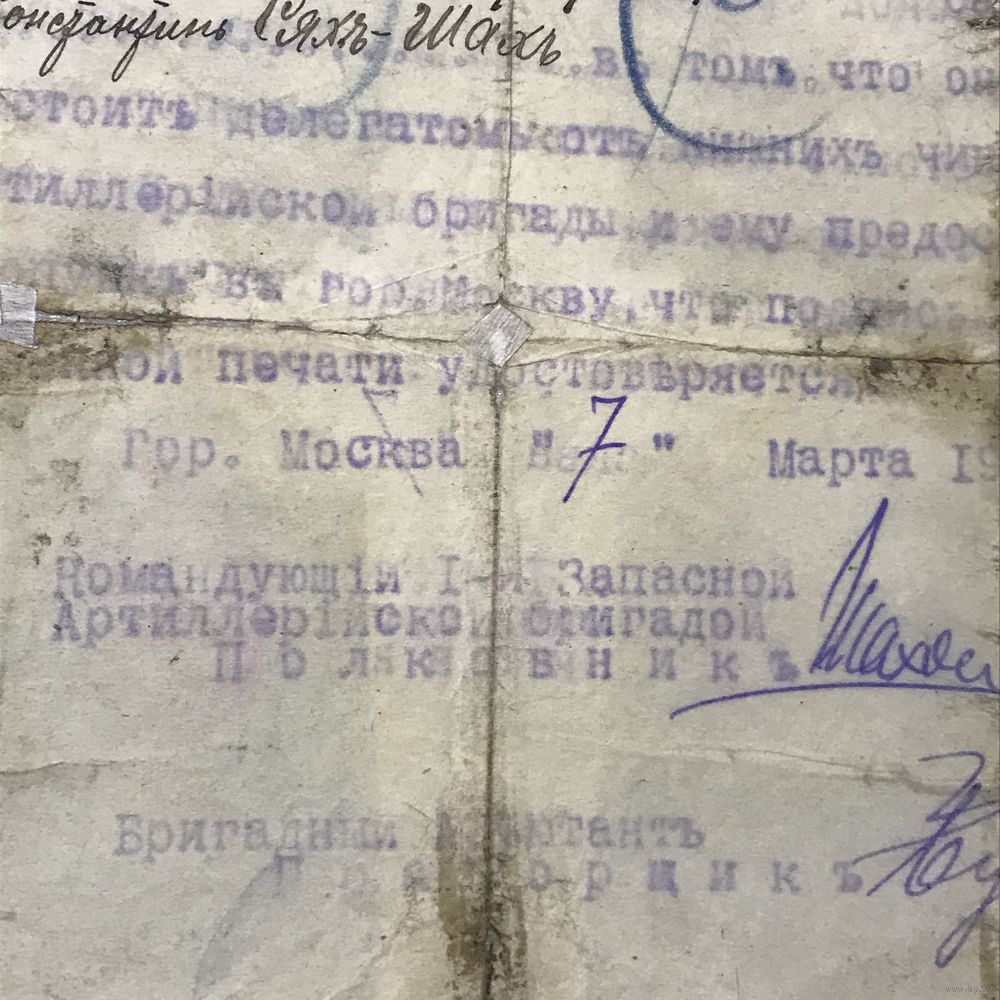 онстантинъ Сяхъ-Шахъ
въ томъ, что он
стоитъ делегатомъ отъ нижнихъ чин
тиллерійской бригады и ему предос
въ гор. Москву, что подписью
ной печати удостовѣряется.
Гор. Москва "7" Марта 19
Командующій I-й Запасной
Артиллерійской бригадой
Полковникъ
Бригадный Адъютантъ
Прапорщикъ
www.ay.by